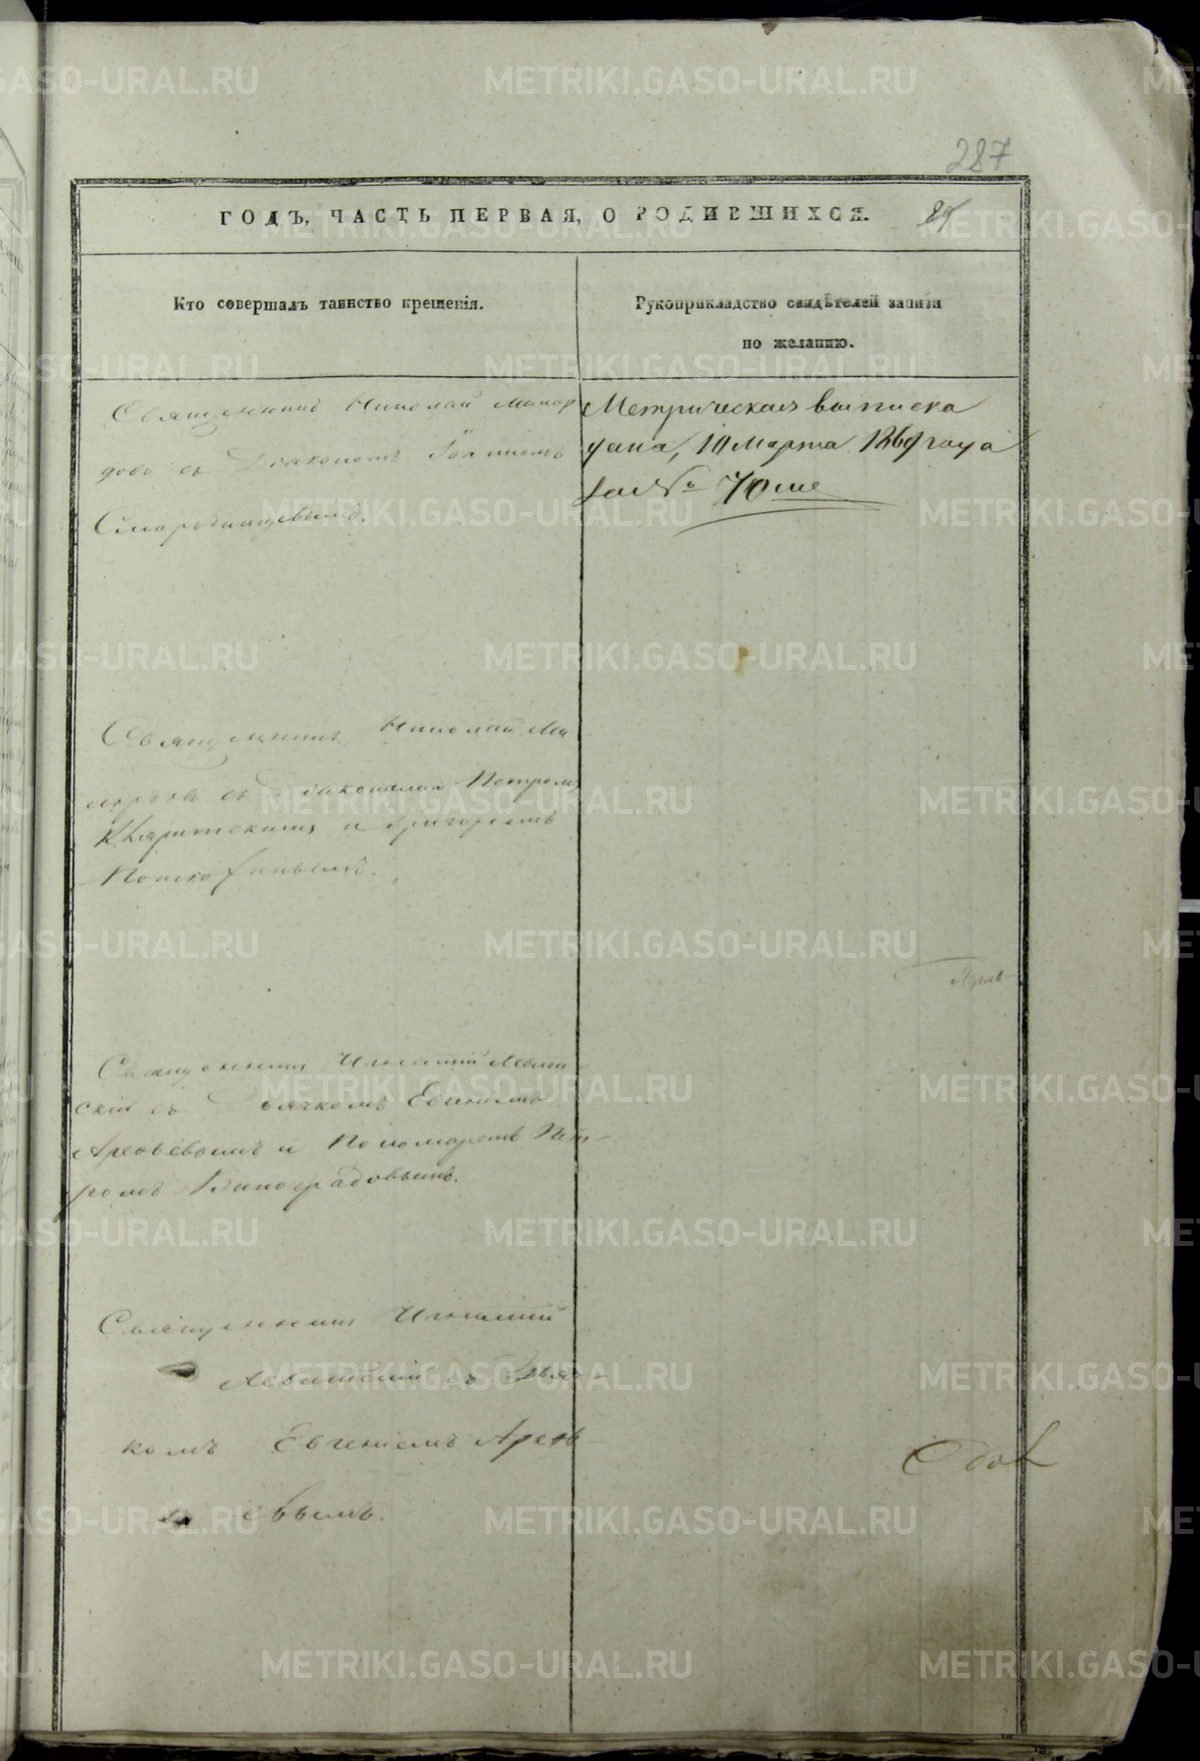 287
ГОДЪ, ЧАСТЬ ПЕРВАЯ, О РОДИВШИХСЯ.
Кто совершалъ таинство крещенія.
Рукоприкладство свидѣтелей записи
по желанію.
Священникъ Николай
съ Діакономъ Іоанномъ
Смородинцевымъ.
Метрическая выписка
дана, 10 Марта 1869 года
за № 70 ме
Священникъ Николай Ми
съ Діаконами Петромъ
и Григоріемъ
Священникъ Игнатій Левит
скій съ Дьячкомъ Евгеніемъ
Арефьевымъ и Пономаремъ Пет
ромъ Виноградовымъ.
Священникъ Игнатій
Левитскій съ Дьяч
комъ Евгеніемъ Арефь
евымъ.
METRIKI.GASO-URAL.RU